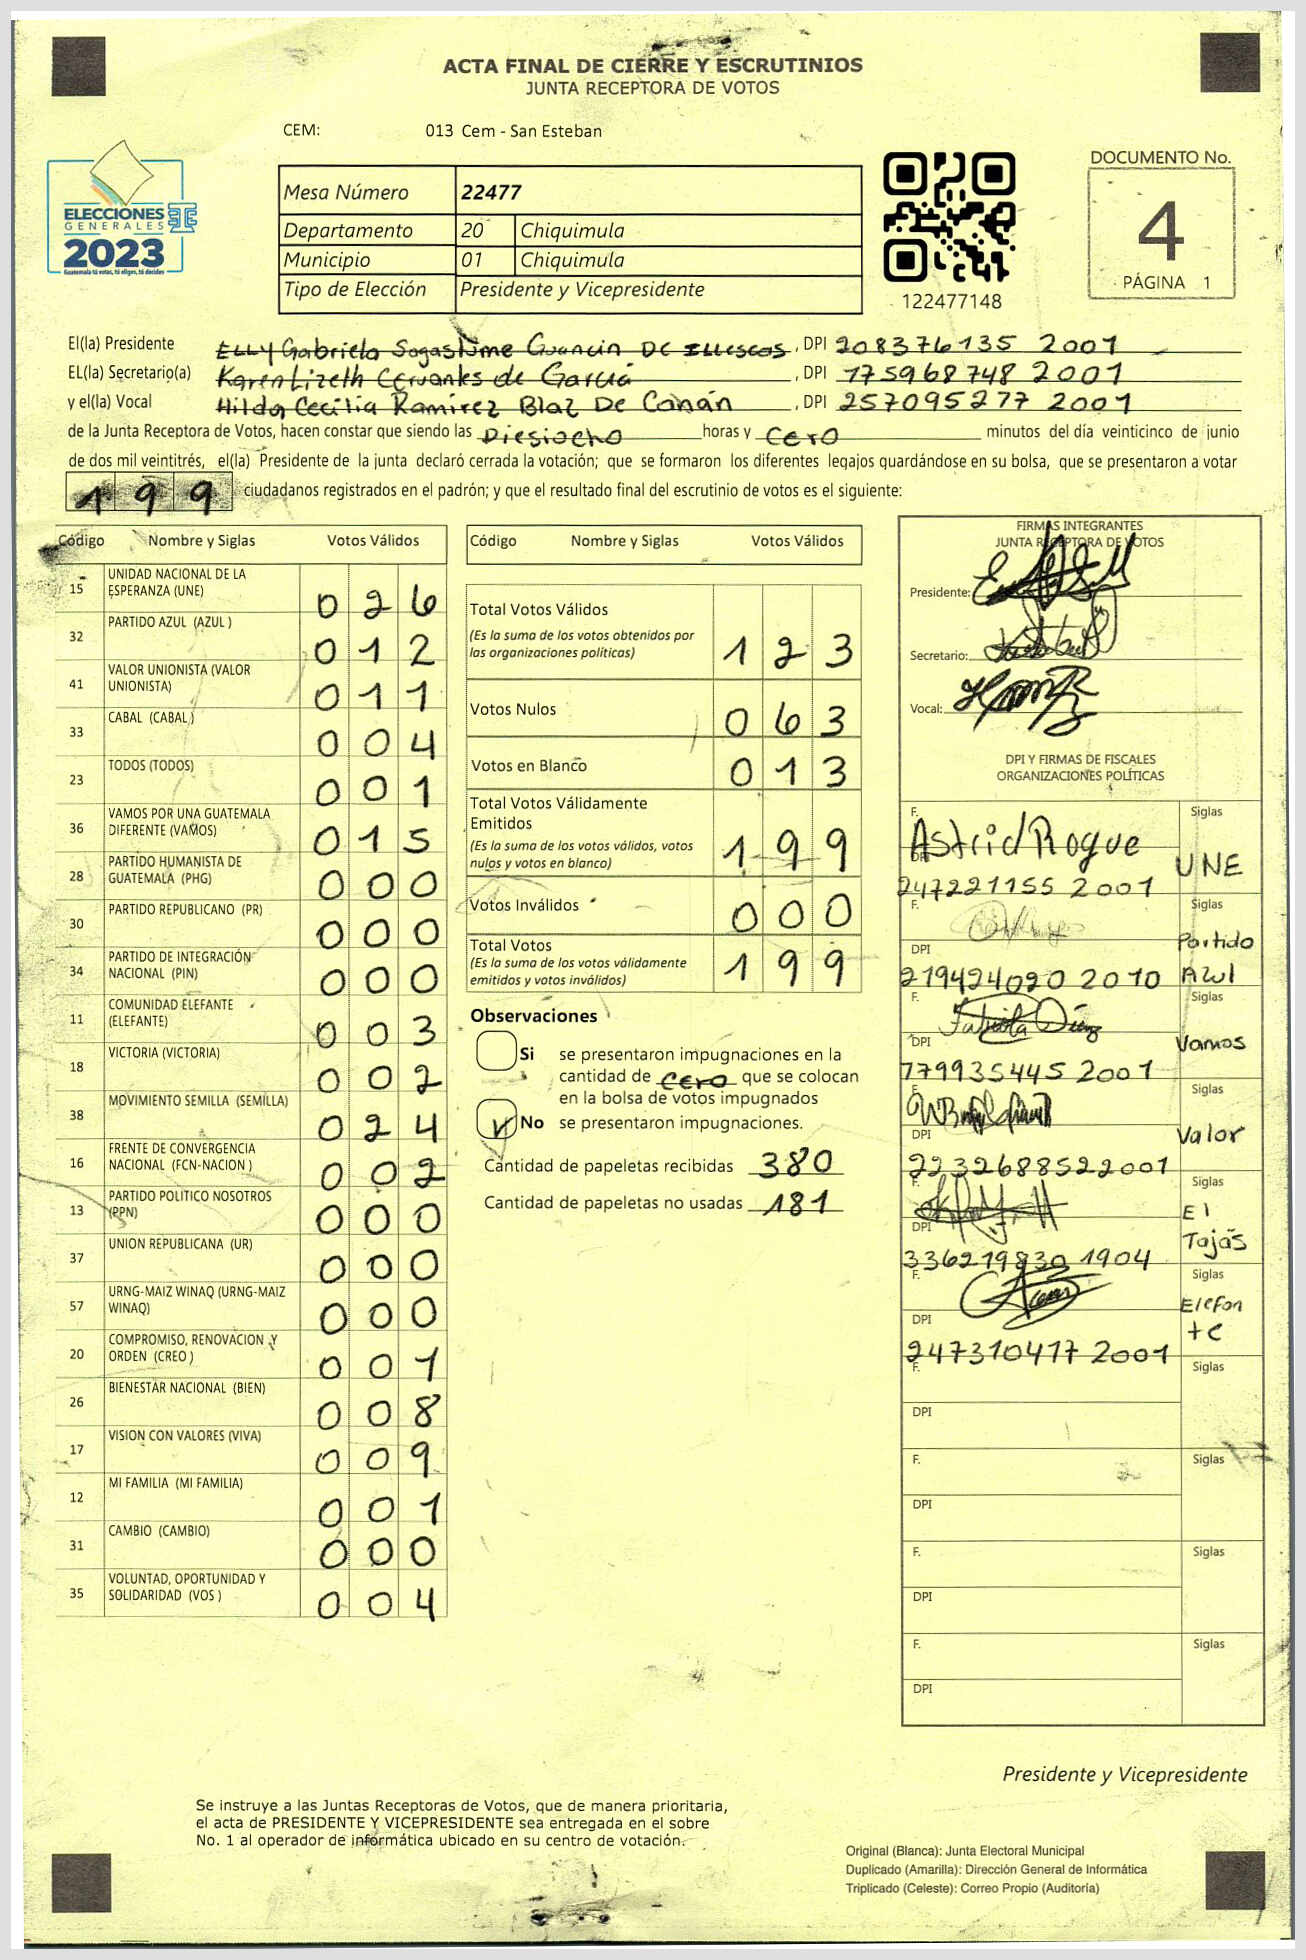 ACTA FINAL DE CIERRE Y ESCRUTINIOS
JUNTA RECEPTORA DE VOTOS
CEM: 013 Cem - San Esteban
ELECCIONES
GENERALES
2023
Guatemala tú votas, tú eliges, tú decides
Mesa Número 22477
Departamento 20 Chiquimula
Municipio 01 Chiquimula
Tipo de Elección Presidente y Vicepresidente
122477148
DOCUMENTO No.
4
PÁGINA 1
El(la) Presidente Elly Gabriela Sagastume Guancin De Illescas, DPI 208376135 2001
EL(la) Secretario(a) Karen Lizeth Cervantes de García, DPI 175968748 2001
y el(la) Vocal Hilda Cecilia Ramirez Blaz De Canán, DPI 257095277 2001
de la Junta Receptora de Votos, hacen constar que siendo las Diesiocho horas y cero minutos del día veinticinco de junio
de dos mil veintitrés, el(la) Presidente de la junta declaró cerrada la votación; que se formaron los diferentes legajos quardándose en su bolsa, que se presentaron a votar
199 ciudadanos registrados en el padrón; y que el resultado final del escrutinio de votos es el siguiente:
Código Nombre y Siglas Votos Válidos
15 UNIDAD NACIONAL DE LA
ESPERANZA (UNE) 026
32 PARTIDO AZUL (AZUL ) 012
41 VALOR UNIONISTA (VALOR
UNIONISTA) 011
33 CABAL (CABAL) 004
23 TODOS (TODOS) 001
36 VAMOS POR UNA GUATEMALA
DIFERENTE (VAMOS) 015
28 PARTIDO HUMANISTA DE
GUATEMALA (PHG) 000
30 PARTIDO REPUBLICANO (PR) 000
34 PARTIDO DE INTEGRACIÓN
NACIONAL (PIN) 000
11 COMUNIDAD ELEFANTE
(ELEFANTE) 003
18 VICTORIA (VICTORIA) 002
38 MOVIMIENTO SEMILLA (SEMILLA) 024
16 FRENTE DE CONVERGENCIA
NACIONAL (FCN-NACION ) 002
13 PARTIDO POLITICO NOSOTROS
(PPN) 000
37 UNION REPUBLICANA (UR) 000
57 URNG-MAIZ WINAQ (URNG-MAIZ
WINAQ) 000
20 COMPROMISO, RENOVACION Y
ORDEN (CREO ) 001
26 BIENESTAR NACIONAL (BIEN) 008
17 VISION CON VALORES (VIVA) 009
12 MI FAMILIA (MI FAMILIA) 001
31 CAMBIO (CAMBIO) 000
35 VOLUNTAD, OPORTUNIDAD Y
SOLIDARIDAD (VOS ) 004
Código Nombre y Siglas Votos Válidos
Total Votos Válidos
(Es la suma de los votos obtenidos por
las organizaciones políticas) 123
Votos Nulos 063
Votos en Blanco 013
Total Votos Válidamente
Emitidos
(Es la suma de los votos válidos, votos
nulos y votos en blanco) 199
Votos Inválidos 000
Total Votos
(Es la suma de los votos válidamente
emitidos y votos inválidos) 199
Observaciones
Si se presentaron impugnaciones en la
cantidad de cero que se colocan
en la bolsa de votos impugnados
No se presentaron impugnaciones.
Cantidad de papeletas recibidas 380
Cantidad de papeletas no usadas 181
FIRMAS INTEGRANTES
JUNTA RECEPTORA DE VOTOS
Presidente:
Secretario:
Vocal:
DPI Y FIRMAS DE FISCALES
ORGANIZACIONES POLÍTICAS
F. Astrid Roque Siglas
DPI 247221155 2001 UNE
F. Siglas
DPI 219424020 2010 Partido Azul
F. Fabiola Díaz Siglas
DPI 779935445 2001 Vamos
F. Siglas
DPI 2232688522001 Valor
F. Siglas
DPI 336219830 1904 El Tajás
F. Siglas
DPI 247310417 2001 Elefante
F. Siglas
DPI
F. Siglas
DPI
F. Siglas
DPI
F. Siglas
DPI
Presidente y Vicepresidente
Se instruye a las Juntas Receptoras de Votos, que de manera prioritaria,
el acta de PRESIDENTE Y VICEPRESIDENTE sea entregada en el sobre
No. 1 al operador de informática ubicado en su centro de votación.
Original (Blanca): Junta Electoral Municipal
Duplicado (Amarilla): Dirección General de Informática
Triplicado (Celeste): Correo Propio (Auditoría)